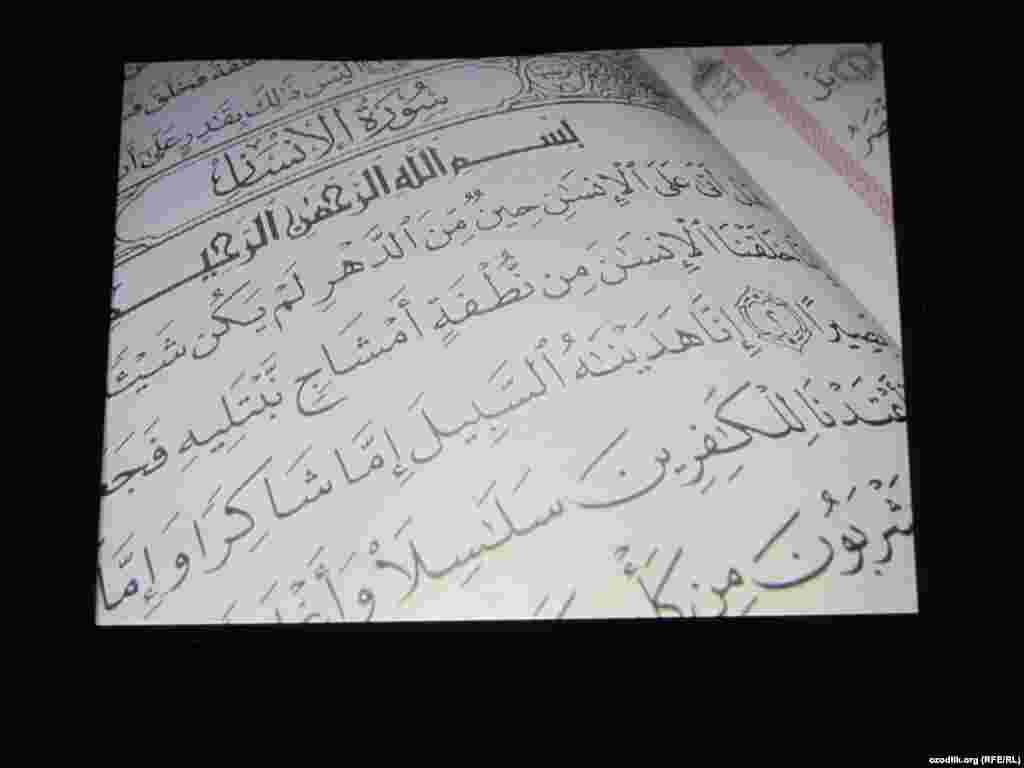 ذَٰلِكَ بِقَٰدِرٍ عَلَىٰ أَن
سُورَةُ الإِنسَانِ
بِسْمِ اللَّهِ الرَّحْمَٰنِ الرَّحِيمِ
أَتَىٰ عَلَى ٱلْإِنسَٰنِ حِينٌ مِّنَ ٱلدَّهْرِ لَمْ يَكُن شَيْـًٔا
خَلَقْنَا ٱلْإِنسَٰنَ مِن نُّطْفَةٍ أَمْشَاجٍ نَّبْتَلِيهِ فَجَ
بَصِيرًا ٢ إِنَّا هَدَيْنَٰهُ ٱلسَّبِيلَ إِمَّا شَاكِرًا وَإِمَّا
أَعْتَدْنَا لِلْكَٰفِرِينَ سَلَٰسِلَا۟ وَأَغْ
يَشْرَبُونَ مِن كَأْ
ozodlik.org (RFE/RL)